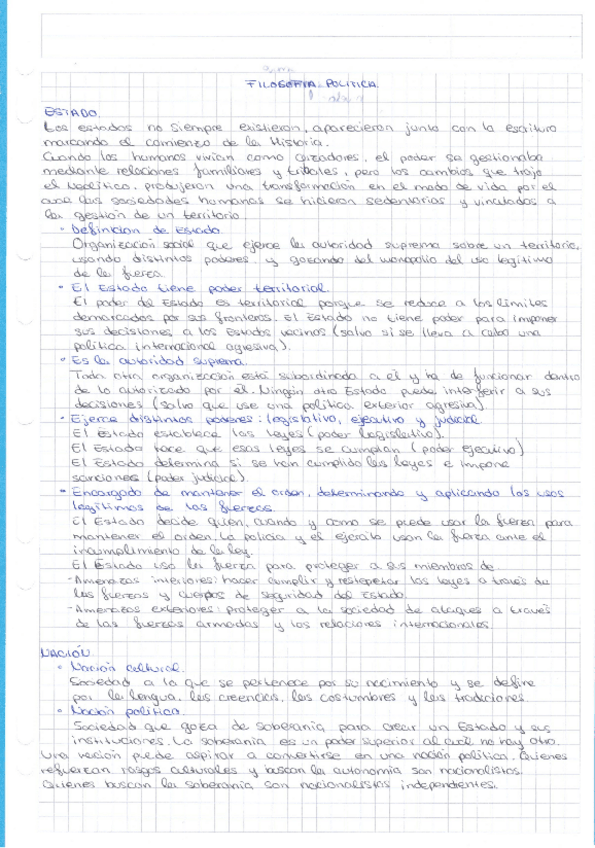 FILOSOFIA POLITICA
ESTADO.
Los estados no siempre existieron, aparecieron junto con la escritura
marcando el comienzo de la Historia.
Cuando los humanos vivian como cazadores, el poder se gestionaba
mediante relaciones familiares y tribales, pero los cambios que trajo
el Neolítico, produjeron una transformación en el modo de vida por el
cual las sociedades humanas se hicieron sedentarias y vinculadas a
la gestión de un territorio.
• Definicion de Estado
Organización social que ejerce la autoridad suprema sobre un territorio,
usando distintos poderes y gozando del monopolio del uso legítimo
de la fuerza.
• El Estado tiene poder territorial.
El poder del Estado es territorial porque se reduce a los límites
demarcados por sus fronteras. El Estado no tiene poder para imponer
sus decisiones a los Estados vecinos (salvo si se lleva a cabo una
política internacional agresiva).
• Es la autoridad suprema.
Toda otra organización está subordinada a él y ha de funcionar dentro
de lo autorizado por él. Ningún otro Estado puede interferir a sus
decisiones (salvo que use una política exterior agresiva).
• Ejerce distintos poderes: legislativo, ejecutivo y judicial
El Estado establece las leyes (poder legislativo).
El Estado hace que esas leyes se cumplan (poder ejecutivo)
El Estado determina si se han cumplido las leyes e impone
sanciones (poder judicial).
• Encargado de mantener el orden, determinando y aplicando los usos
legítimos de las fuerzas.
El Estado decide quien, cuando y como se puede usar la fuerza para
mantener el orden. La policía y el ejército usan la fuerza ante el
incumplimiento de la ley.
El Estado usa la fuerza para proteger a sus miembros de
-Amenazas interiores: hacer cumplir y restepetar las leyes a través de
las fuerzas y cuerpos de seguridad del Estado
-Amenazas exteriores: proteger a la sociedad de ataques a través
de las fuerzas armadas y las relaciones internacionales.
NACIÓN
• Nación cultural.
Sociedad a la que se pertenece por su nacimiento y se define
por la lengua, las creencias, las costumbres y las tradiciones.
• Nación política.
Sociedad que goza de soberanía para crear un Estado y sus
instituciones. La soberanía es un poder superior al cual no hay otro.
Una nación puede aspirar a convertirse en una nación política. Quienes
refuerzan rasgos culturales y buscan la autonomía son nacionalistas.
Quienes buscan la soberanía son nacionalistas independentes.